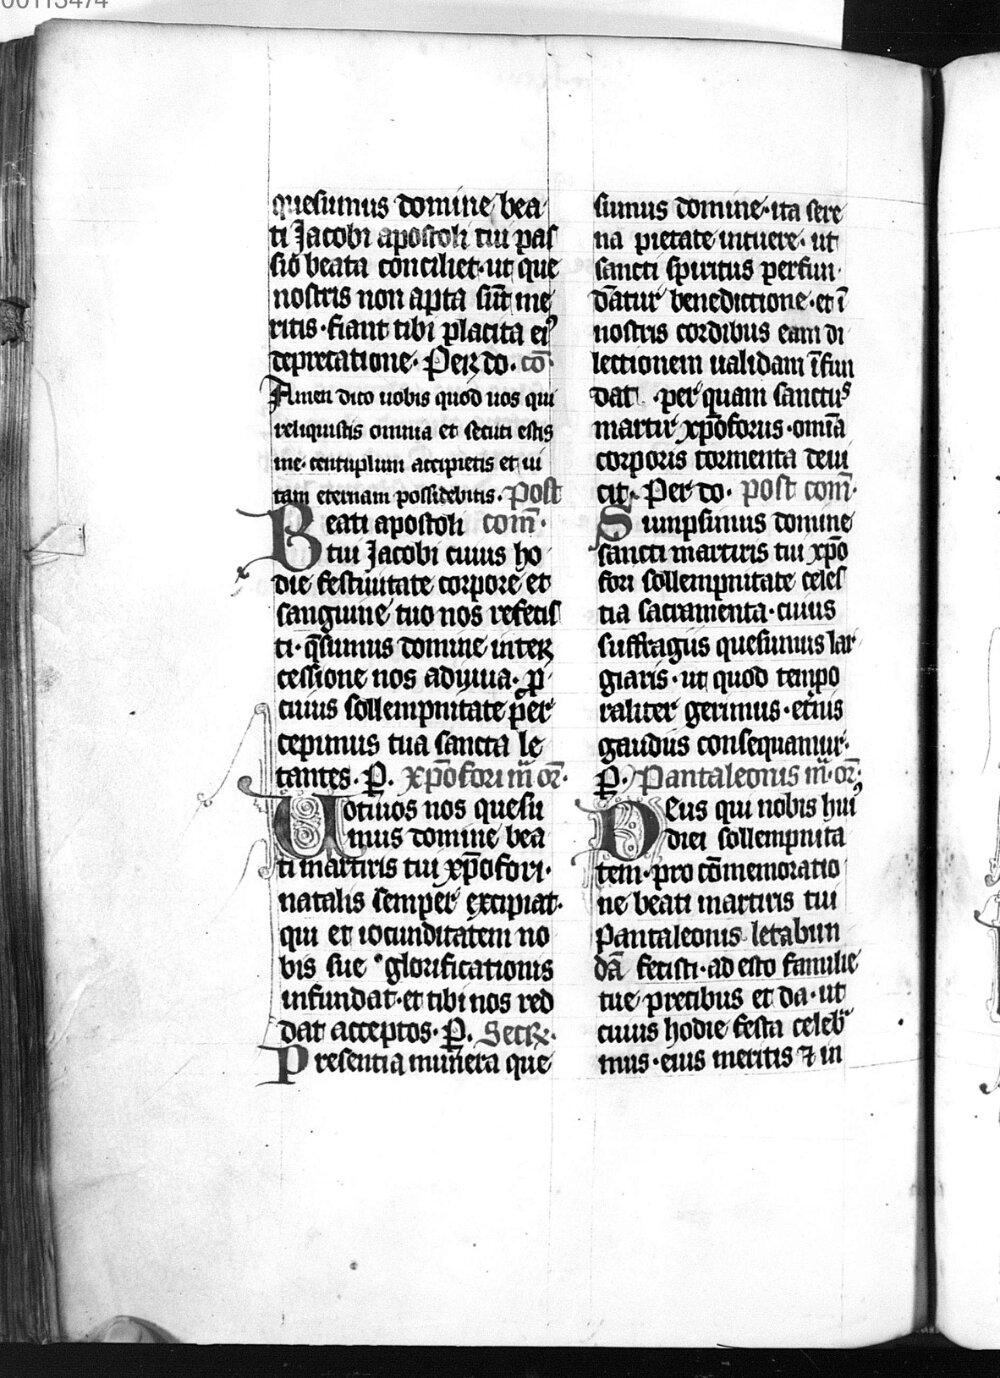 00113474
quesumus domine bea
ti Jacobi apostoli tui pas
sio beata conciliet· ut que
nostris non apta sūt me
ritis· fiant tibi placita ei⁹
deprecatione· Per do· cō
Amen dico uobis quod uos qui
reliquistis omnia et secuti estis
me· centuplum accipietis et ui
tam eternam possidebitis· Post
Beati apostoli com̄·
tui Jacobi cuius ho
die festiuitate corpore et
sanguine tuo nos refecis
ti· q̄sumus domine inter
cessione nos adiuua· p̄
cuius sollempnitate per
cepimus tua sancta le
tantes· P. xp̄ofori m̄ or̄·
Uotiuos nos quesu
mus domine bea
ti martiris tui xp̄ofori·
natalis semper excipiat·
qui et iocunditatem no
bis sue glorificationis
infundat· et tibi nos red
dat acceptos· P. Secr̄·
Presentia munera que
sumus domine· ita sere
na pietate intuere· ut
sancti spiritus perfun·
datur benedictione· et ī
nostris cordibus eam di
lectionem ualidam īfun
dat· per quam sanctus
martir xp̄oforus· omīa
corporis tormenta deui
cit· Per do· post com̄·
Sumpsimus domine
sancti martiris tui xp̄o
fori sollempnitate celes
tia sacramenta· cuius
suffragiis quesumus lar
giaris· ut quod tempo
raliter gerimus· et̄nis
gaudiis consequamur·
P. Pantaleonis m̄· or̄·
Deus qui nobis hui⁹
diei sollempnita
tem· pro cōmemoratio
ne beati martiris tui
Pantaleonis letabun
dā fecisti· ad esto familie
tue precibus et da· ut
cuius hodie festa celebra
mus· eius meritis ⁊ in